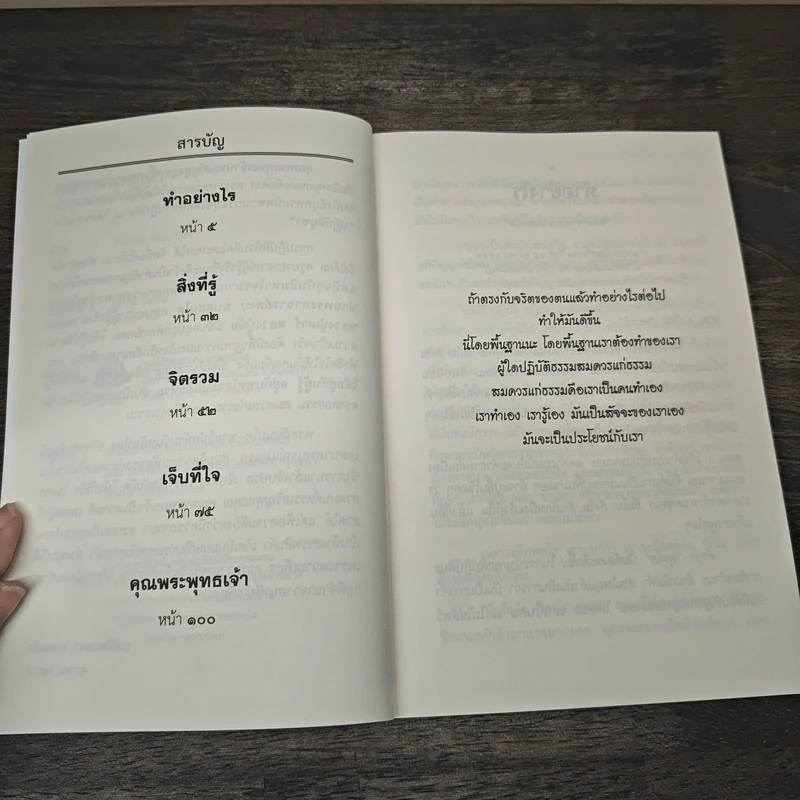 สารบัญ
ทำอย่างไร
หน้า ๕
สิ่งที่รู้
หน้า ๓๒
จิตรวม
หน้า ๕๒
เจ็บที่ใจ
หน้า ๗๕
คุณพระพุทธเจ้า
หน้า ๑๐๐
ถ้าตรงกับจริตของตนแล้วทำอย่างไรต่อไป
ทำให้มันดีขึ้น
นี่โดยพื้นฐานนะ โดยพื้นฐานเราต้องทำของเรา
ผู้ใดปฏิบัติธรรมสมควรแก่ธรรม
สมควรแก่ธรรมคือเราเป็นคนทำเอง
เราทำเอง เรารู้เอง มันเป็นสัจจะของเราเอง
มันจะเป็นประโยชน์กับเรา